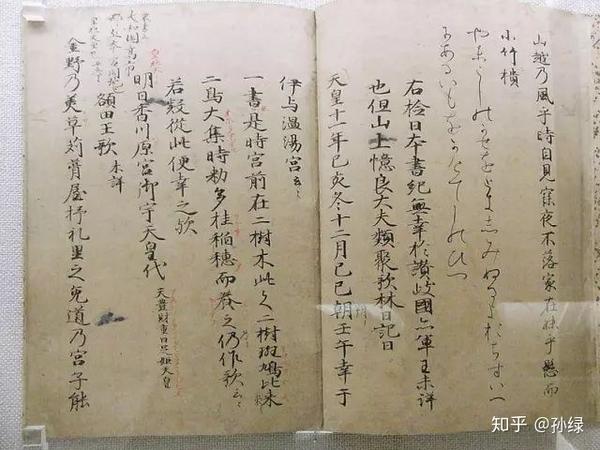 山越乃風乎時自見寐夜不落家在妹乎懸而
小竹樻
やまこしのかせをときしみぬるよおちすいへ
にあるいもをかけてしのひつ
右檢日本書紀無幸於讚岐國亦軍王未詳
也但山上憶良大夫類聚歌林曰記曰
天皇十一年己亥冬十二月己巳朔壬午幸于
伊与温湯宮云々
一書是時宮前在二樹木此之二樹斑鳩比米
二鳥大集時勅多挂稲穂而養之仍作歌云々
若疑從此便幸之歟
明日香川原宮御宇天皇代 天豊財重日足姫天皇
額田王歌 未詳
金野乃美草苅葺屋杼礼里之兎道乃宮子能
知乎 @孙绿